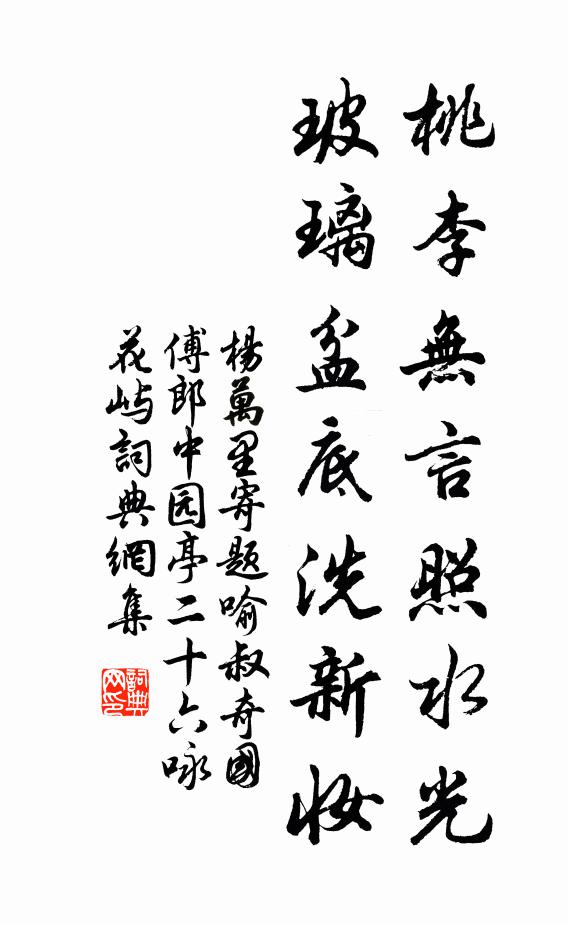 桃李無言照水光
玻璃盆底洗新妝
楊萬里寄題喻叔奇國
傅郎中园亭二十六咏
花屿詞典網集
詞典网印